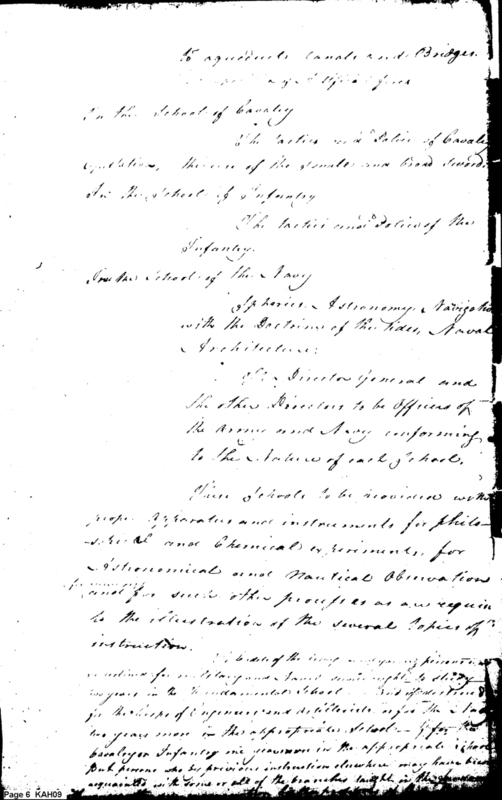 to aqueducts Canals and Bridges.
In the School of Cavalry
The tactics and Police of Cavalry
equitation, the use of the and broad Sword.
In the School of Infantry
The tactics and Police of the
Infantry.
In the School of the Navy
Spherics, Astronomy, Navigation
with the Doctrine of the tides, Naval
Architecture;
The Director General and
the other Directors to be Officers of
the Army and Navy conforming
to the Nature of each School.
These Schools to be provided with
proper apparatus and instruments for philo-
sophical and Chemical experiments, for
Astronomical and Nautical Observations
and for such other processes as are requir
to the illustration of the several topics of
instruction.
Cadets of the army and young persons
for military and Naval
years in the Fundamental School
for the Corps of Engineers and for the Navy
two years more in the appropriate School for the
Cavalry or Infantry one year more in the appropriate School
But persons who by previous instruction elsewhere may have been
acquainted with some or all of the branches taught in the
Page 6 KAH09